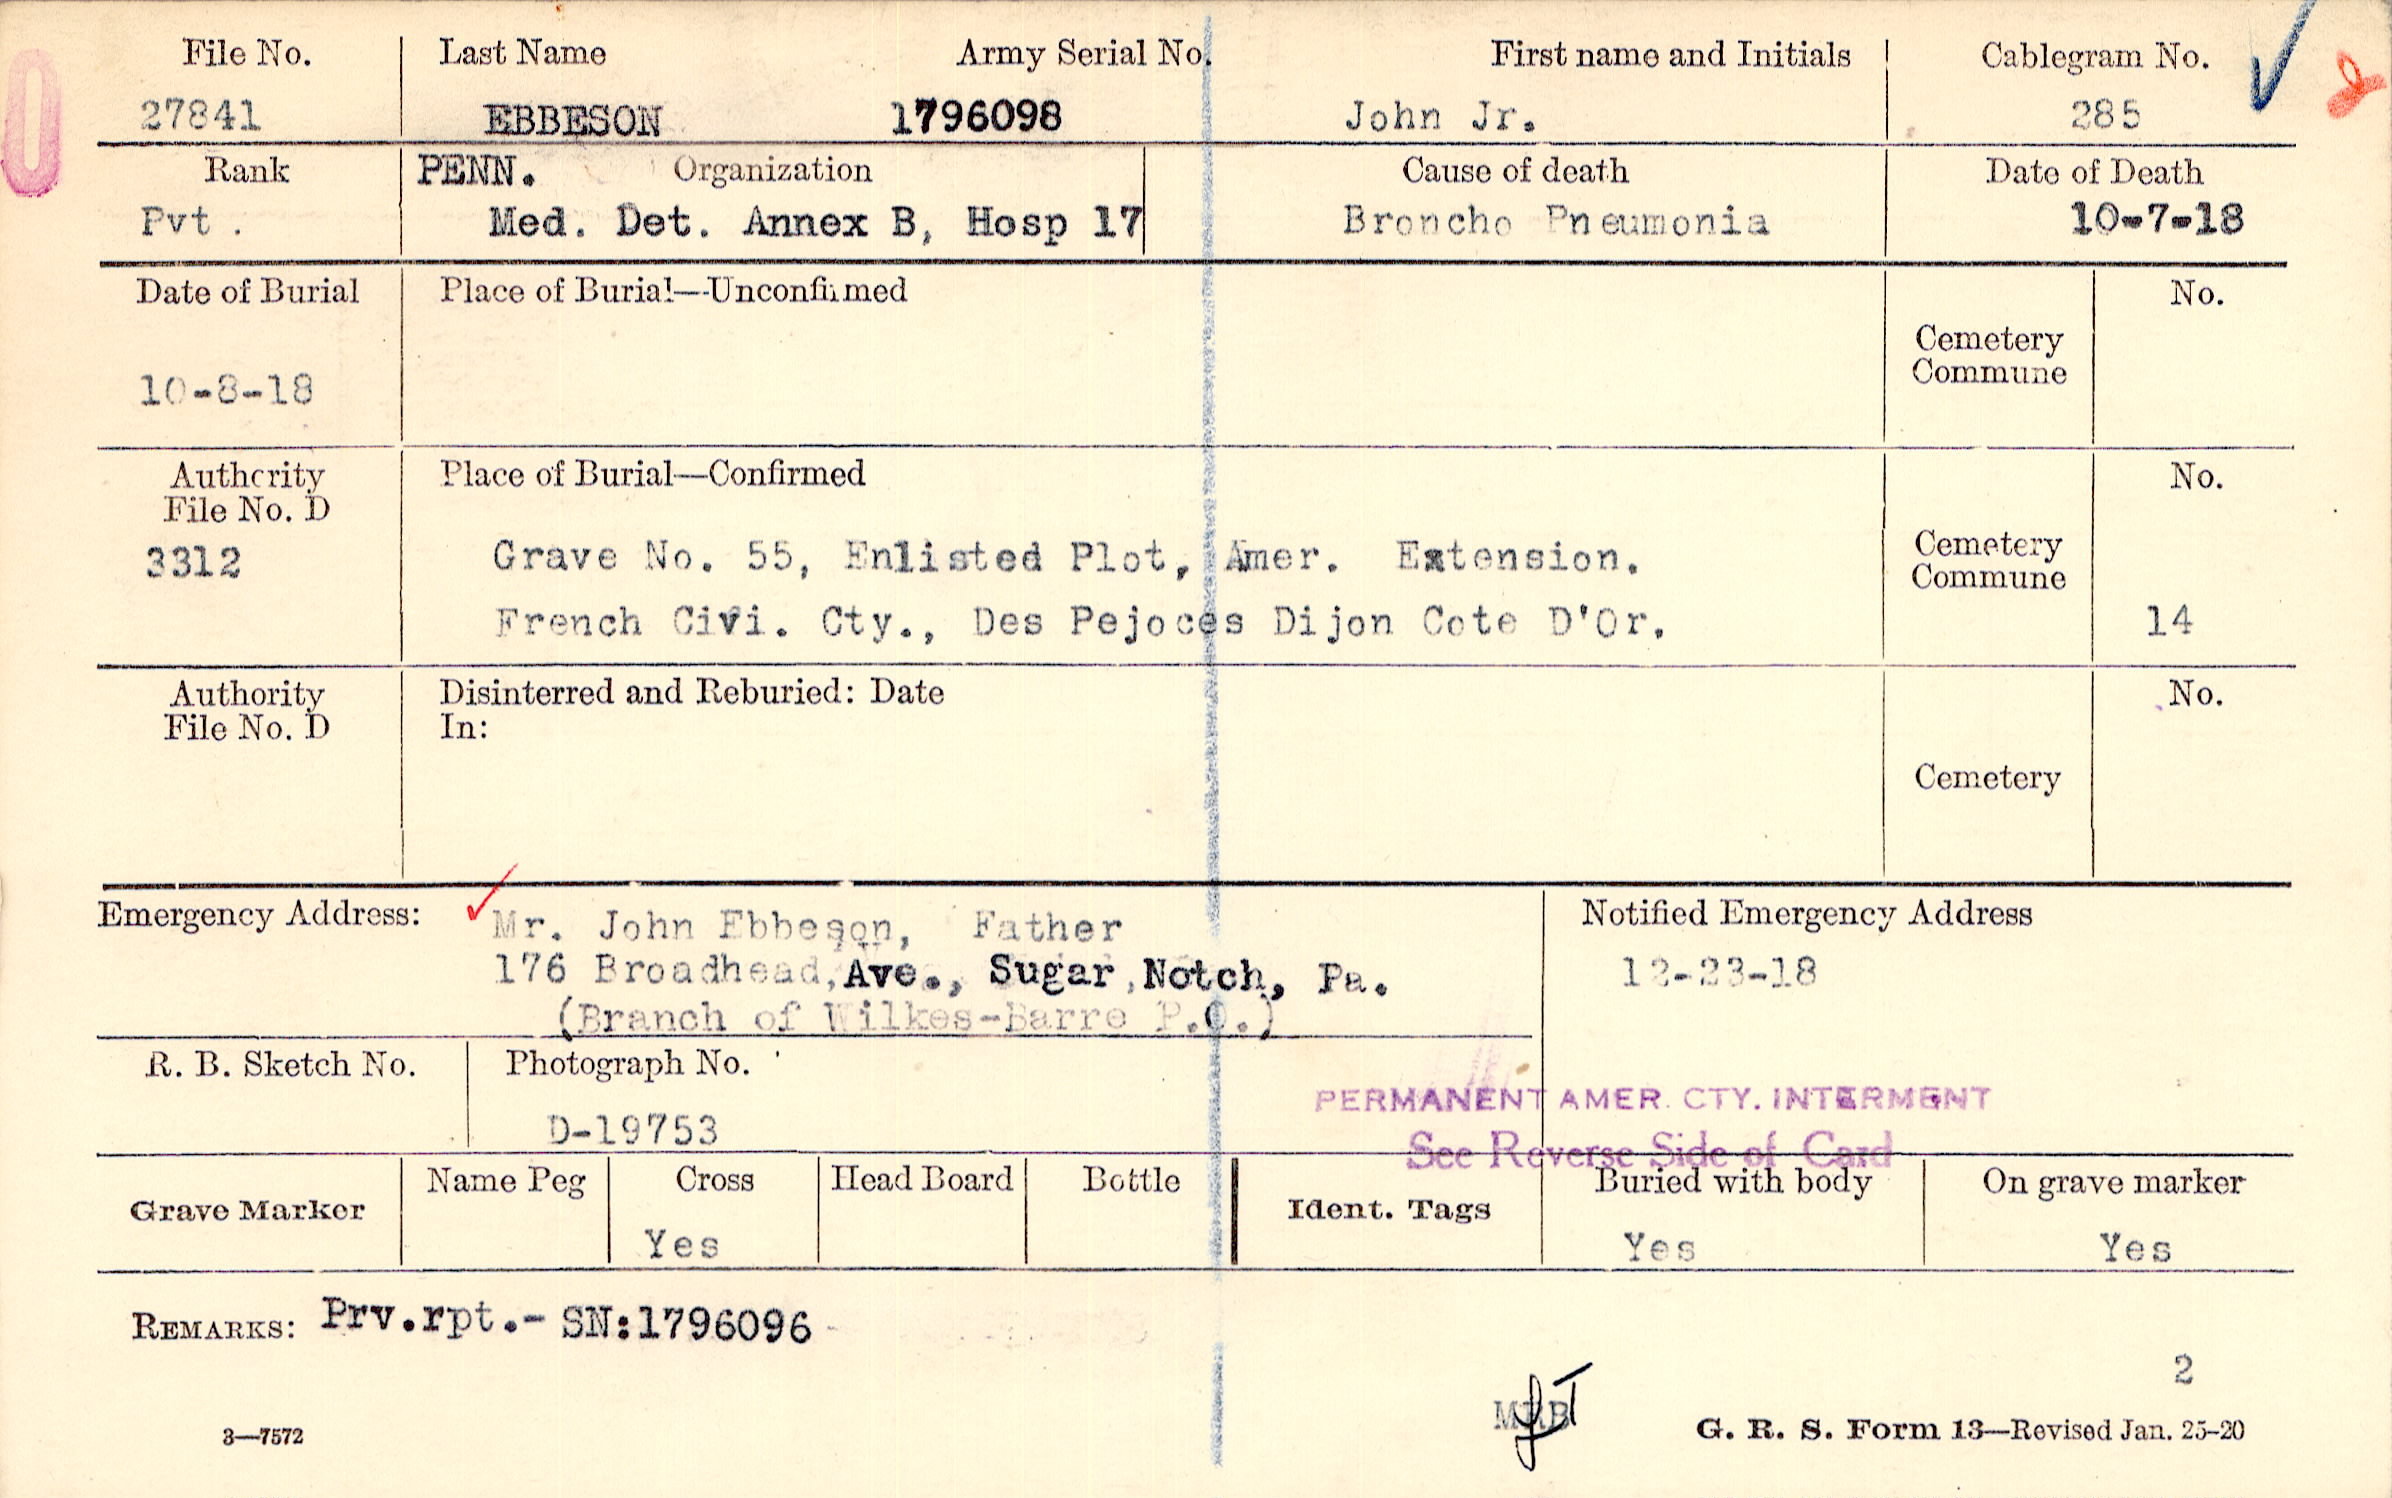 File No. Last Name Army Serial No. First name and Initials Cablegram No.
27841 EBBESON 1796098 John Jr. 285
Rank PENN. Organization Cause of death Date of Death
Pvt. Med. Det. Annex B, Hosp 17 Broncho Pneumonia 10-7-18
Date of Burial Place of Burial—Unconfirmed No.
Cemetery
Commune
10-8-18
Authority Place of Burial—Confirmed No.
File No. D
3312 Grave No. 55, Enlisted Plot, Amer. Extension. Cemetery
Commune
French Civi. Cty., Des Pejoces Dijon Cote D'Or. 14
Authority Disinterred and Reburied: Date No.
File No. D In:
Cemetery
Emergency Address: Mr. John Ebbeson, Father Notified Emergency Address
176 Broadhead, Ave., Sugar, Notch, Pa. 12-23-18
(Branch of Wilkes-Barre P.O.)
R. B. Sketch No. Photograph No.
PERMANENT AMER. CTY. INTERMENT
D-19753
See Reverse Side of Card
Grave Marker Name Peg Cross Head Board Bottle Ident. Tags Buried with body On grave marker
Yes Yes Yes
REMARKS: Prv.rpt.- SN:1796096
2
3—7572 G. R. S. Form 13—Revised Jan. 25-20